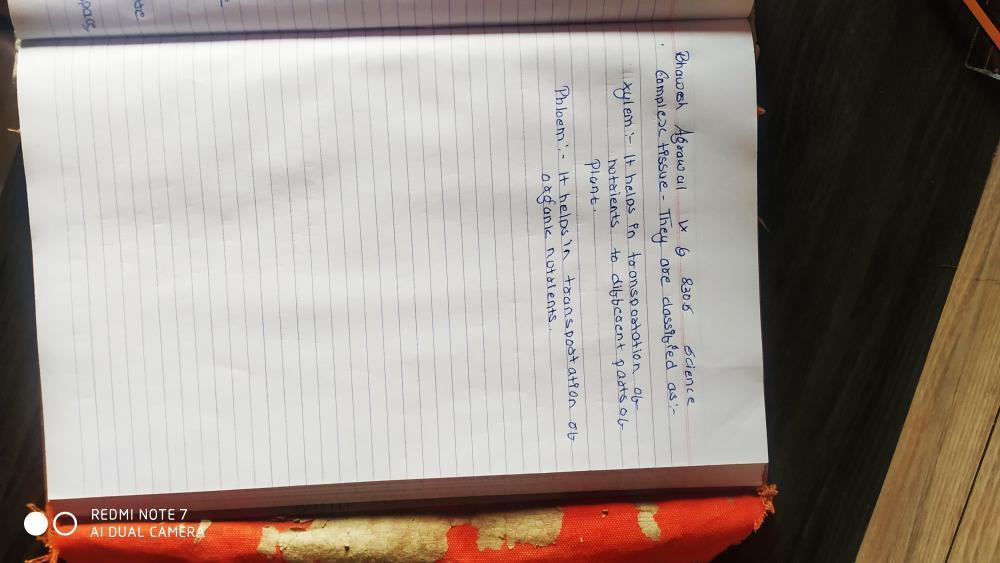 Bhawesh Agrawal IX G 8305 Science
Complex tissue - They are classified as:-
xylem:- It helps in transportation of
nutrients to different parts of
Plant.
Phloem:- It helps in transportation of
organic nutrients.
REDMI NOTE 7
AI DUAL CAMERA